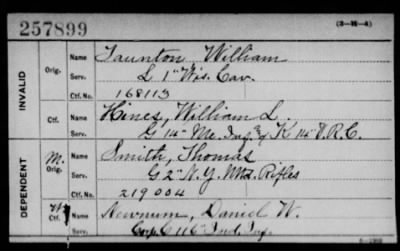 257899 (3-H-4)
INVALID
Orig. Name Taunton, William
Serv. L 1" Wis. Cav.
Ctf. No. 168113
Ctf. Name Hines, William L.
Serv. G 14" Me. Inf. & K 14" V.R.C.
DEPENDENT
M. Orig. Name Smith, Thomas
Serv. G 2" N.Y. Mtd. Rifles
Ctf. No. 219004
Ctf. Name Newnum, Daniel W.
Serv. Corp. C 116" Ind. Inf.